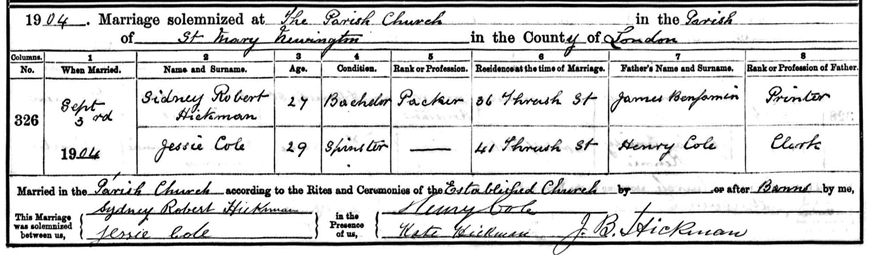 1904. Marriage solemnized at The Parish Church in the Parish
of St Mary Newington in the County of London
Columns. 1 2 3 4 5 6 7 8
No. When Married. Name and Surname. Age. Condition. Rank or Profession. Residence at the time of Marriage. Father's Name and Surname. Rank or Profession of Father.
326 Sept 3rd 1904 Sidney Robert Hickman 27 Bachelor Packer 36 Thrush St James Benjamin Printer
Jessie Cole 29 Spinster — 41 Thrush St Henry Cole Clerk
Married in the Parish Church according to the Rites and Ceremonies of the Established Church by or after Banns by me,
This Marriage was solemnized between us, Sydney Robert Hickman Jessie Cole in the Presence of us, Henry Cole Kate Hickman J. B. Hickman